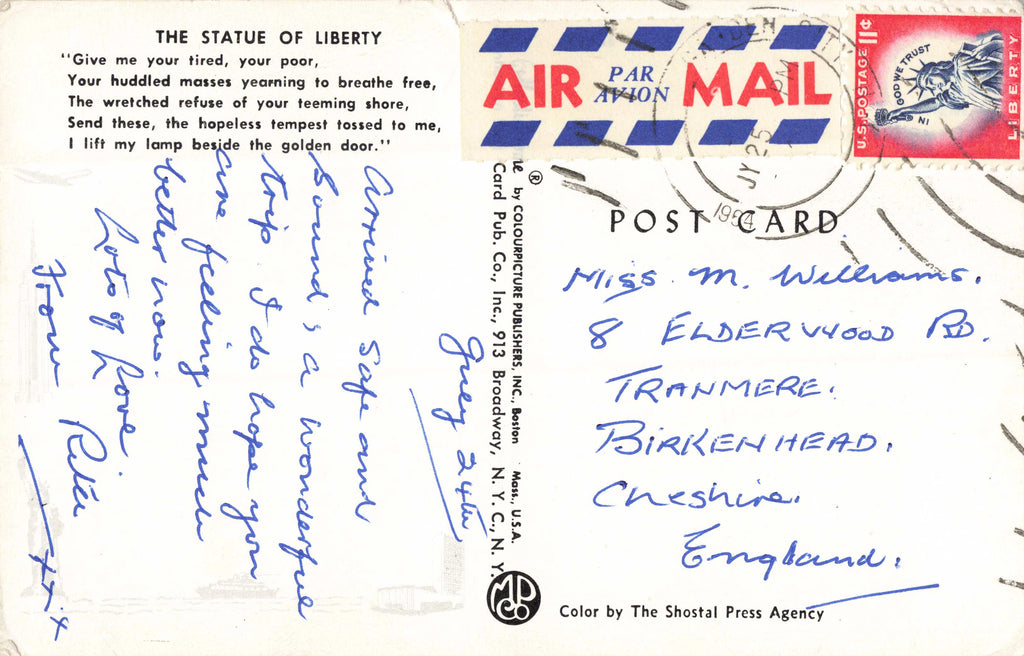 THE STATUE OF LIBERTY
"Give me your tired, your poor,
Your huddled masses yearning to breathe free,
The wretched refuse of your teeming shore,
Send these, the hopeless tempest tossed to me,
I lift my lamp beside the golden door."
AIR PAR AVION MAIL
JY 25
PM
1964
U.S. POSTAGE 11¢
IN GOD WE TRUST
LIBERTY
POST CARD
July 24th
Arrived safe and
sound, a wonderful
trip. I do hope you
are feeling much
better now.
Lots of Love
From Rita
xxx
® by COLOURPICTURE PUBLISHERS, INC., Boston Mass., U.S.A.
Card Pub. Co., Inc., 913 Broadway, N. Y. C., N. Y.
MPCo
Miss. M. Williams.
8 ELDERWOOD RD.
TRANMERE.
BIRKENHEAD.
Cheshire.
England.
Color by The Shostal Press Agency